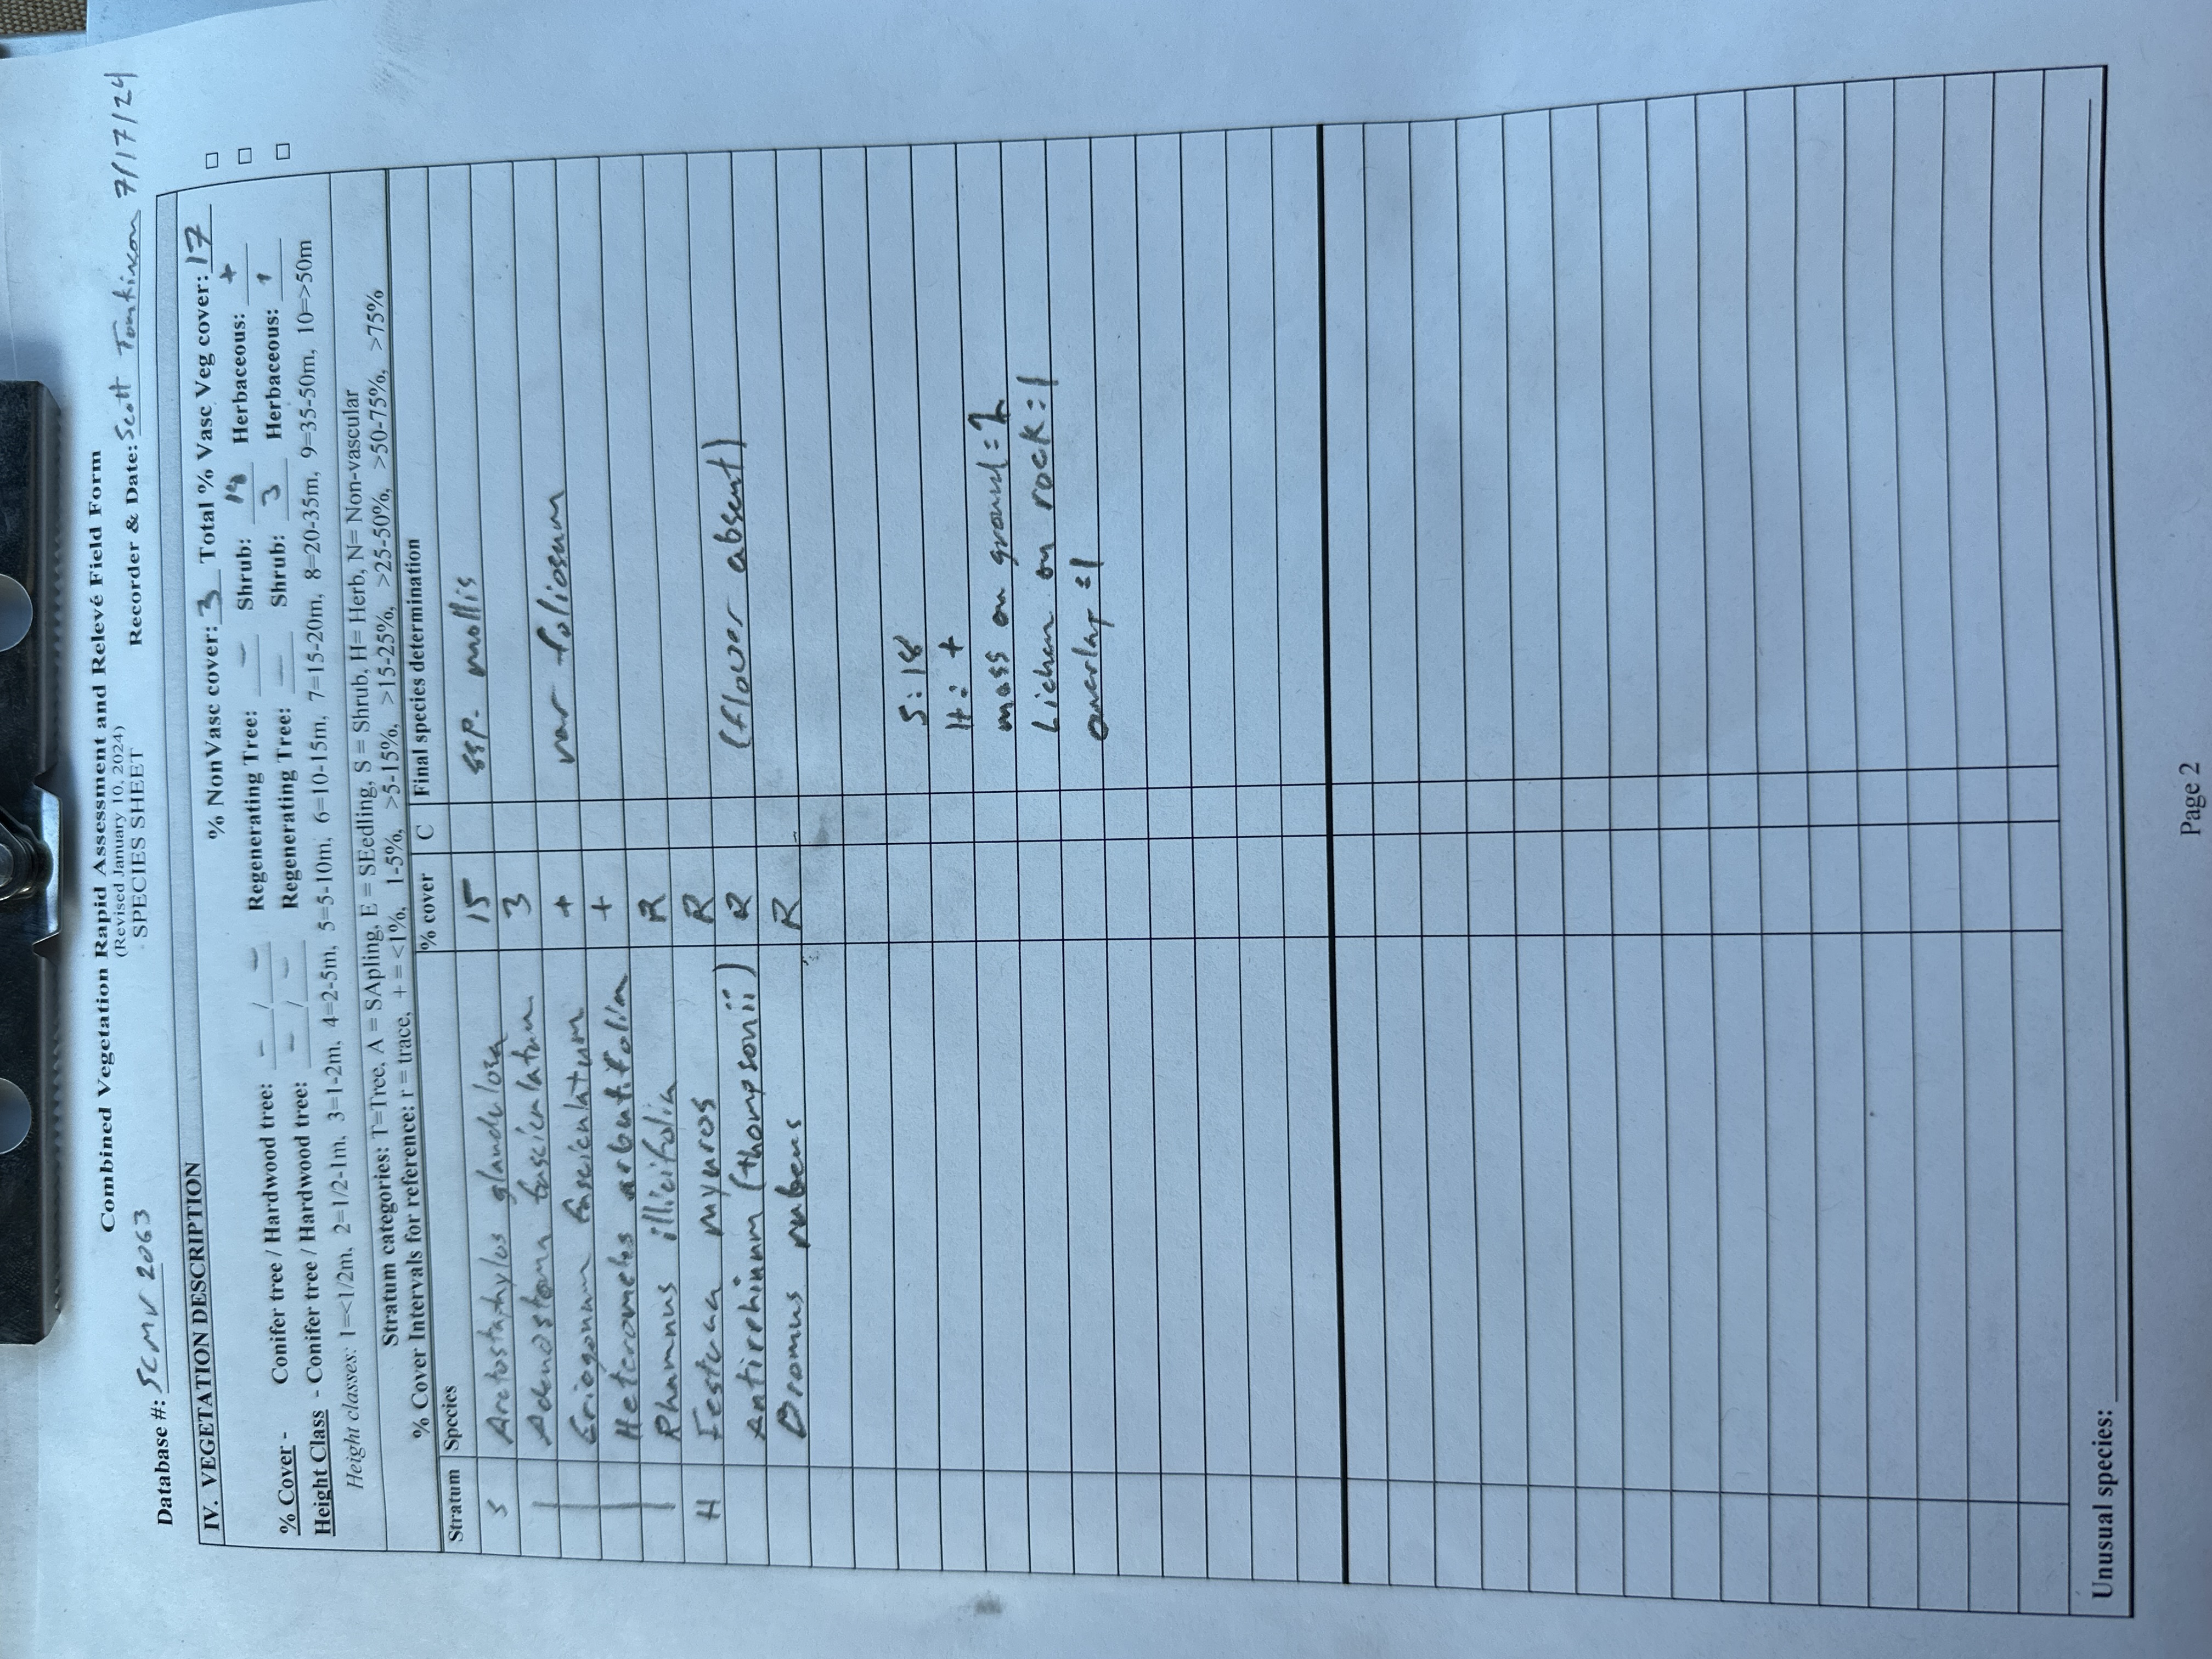 Combined Vegetation Rapid Assessment and Relevé Field Form
(Revised January 10, 2024)
SPECIES SHEET
Database #: SCMV 2063 Recorder & Date: Scott Tomkinson 7/17/24
IV. VEGETATION DESCRIPTION
% NonVasc cover: 3 Total % Vasc Veg cover: 17 □
% Cover - Conifer tree / Hardwood tree: - / - Regenerating Tree: - Shrub: Herbaceous: + □
Height Class - Conifer tree / Hardwood tree: - / - Regenerating Tree: - Shrub: 3 Herbaceous: 1 □
Height classes: 1=<1/2m, 2=1/2-1m, 3=1-2m, 4=2-5m, 5=5-10m, 6=10-15m, 7=15-20m, 8=20-35m, 9=35-50m, 10=>50m
Stratum categories: T=Tree, A = SApling, E = SEedling, S = Shrub, H= Herb, N= Non-vascular
% Cover Intervals for reference: r = trace, + = <1%, 1-5%, >5-15%, >15-25%, >25-50%, >50-75%, >75%
Stratum Species % cover C Final species determination
S Arctostaphylos glandulosa 15 ssp. mollis
Adenostoma fasciculatum 3
Eriogonum fasciculatum + var foliosum
Heteromeles arbutifolia +
Rhamnus illicifolia R
H Festuca myuros R
Antirrhinum (thompsonii) R (flower absent)
Bromus rubens R
S: 18
H: +
moss on ground =
Lichen on rock = 1
overlap = 1
Unusual species:
Page 2